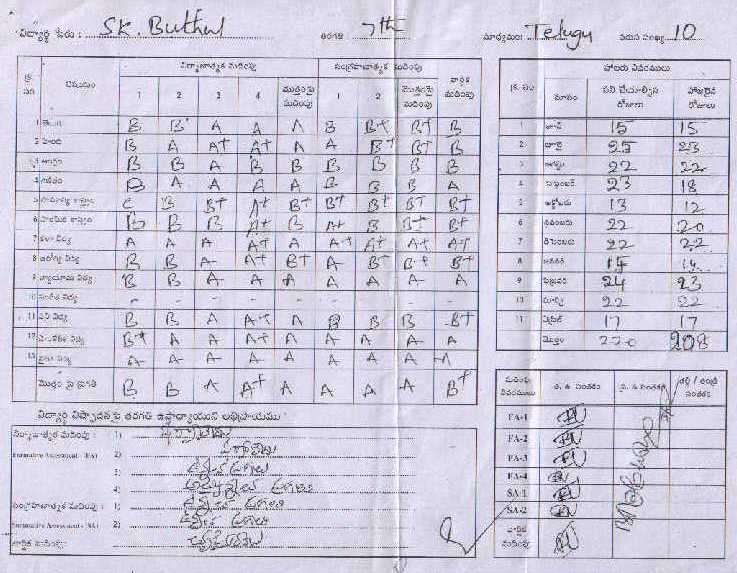 విద్యార్థి పేరు : SK. Buthul తరగతి 7th మాధ్యమం: Telugu వరుస సంఖ్య 10
క్ర. సం విషయము నిర్మాణాత్మక మదింపు సంగ్రహణాత్మక మదింపు వార్షిక మదింపు
1 2 3 4 మొత్తంపై మదింపు 1 2 మొత్తంపై మదింపు
1 B B A A A B B+ B+ B
2 B A A+ A+ A A B+ B+ B
3 B B A B B B B B B
4 గణితం B A A A A B B B A
5 సామాన్య శాస్త్రం C B B+ A+ B+ B+ B+ B+ B+
6 సాంఘిక శాస్త్రం B B B A+ B A+ B B+ B+
7 కళా విద్య A A A A+ A A+ A+ A+ A+
8 ఆరోగ్య విద్య B B A A+ B+ A B+ B+ B+
9 వ్యాయామ విద్య B B A A A A A A A
10 - - - - - - - - -
11 పని విద్య B B A A+ A B B B B+
12 విద్య B+ A A A+ A A A A A
13 విద్య A A A A A A A A A
మొత్తం పై ప్రగతి B B A A+ A A A A B+
హాజరు వివరములు
క్ర. సం మాసం పని చేయాల్సిన రోజులు హాజరైన రోజులు
1 జూన్ 15 15
2 జూలై 25 23
3 ఆగష్టు 22 22
4 సెప్టెంబర్ 23 18
5 అక్టోబరు 13 12
6 నవంబరు 22 20
7 డిసెంబరు 22 22
8 జనవరి 14 14
9 ఫిబ్రవరి 24 23
10 మార్చి 22 22
11 ఏప్రిల్ 17 17
మొత్తం 220 208
విద్యార్థి నిష్పాదనపై తరగతి ఉపాధ్యాయుని అభిప్రాయము :
నిర్మాణాత్మక మదింపు : 1)
Formative Assessment - (FA) 2)
3)
4)
సంగ్రహణాత్మక మదింపు : 1)
Summative Assessment - (SA) 2)
వార్షిక మదింపు:
మదింపు వివరములు త. ఉ సంతకం ప్ర. ఉ సంతకం తల్లి / తండ్రి సంతకం
FA-1
FA-2
FA-3
FA-4
SA-1
SA-2
వార్షిక మదింపు